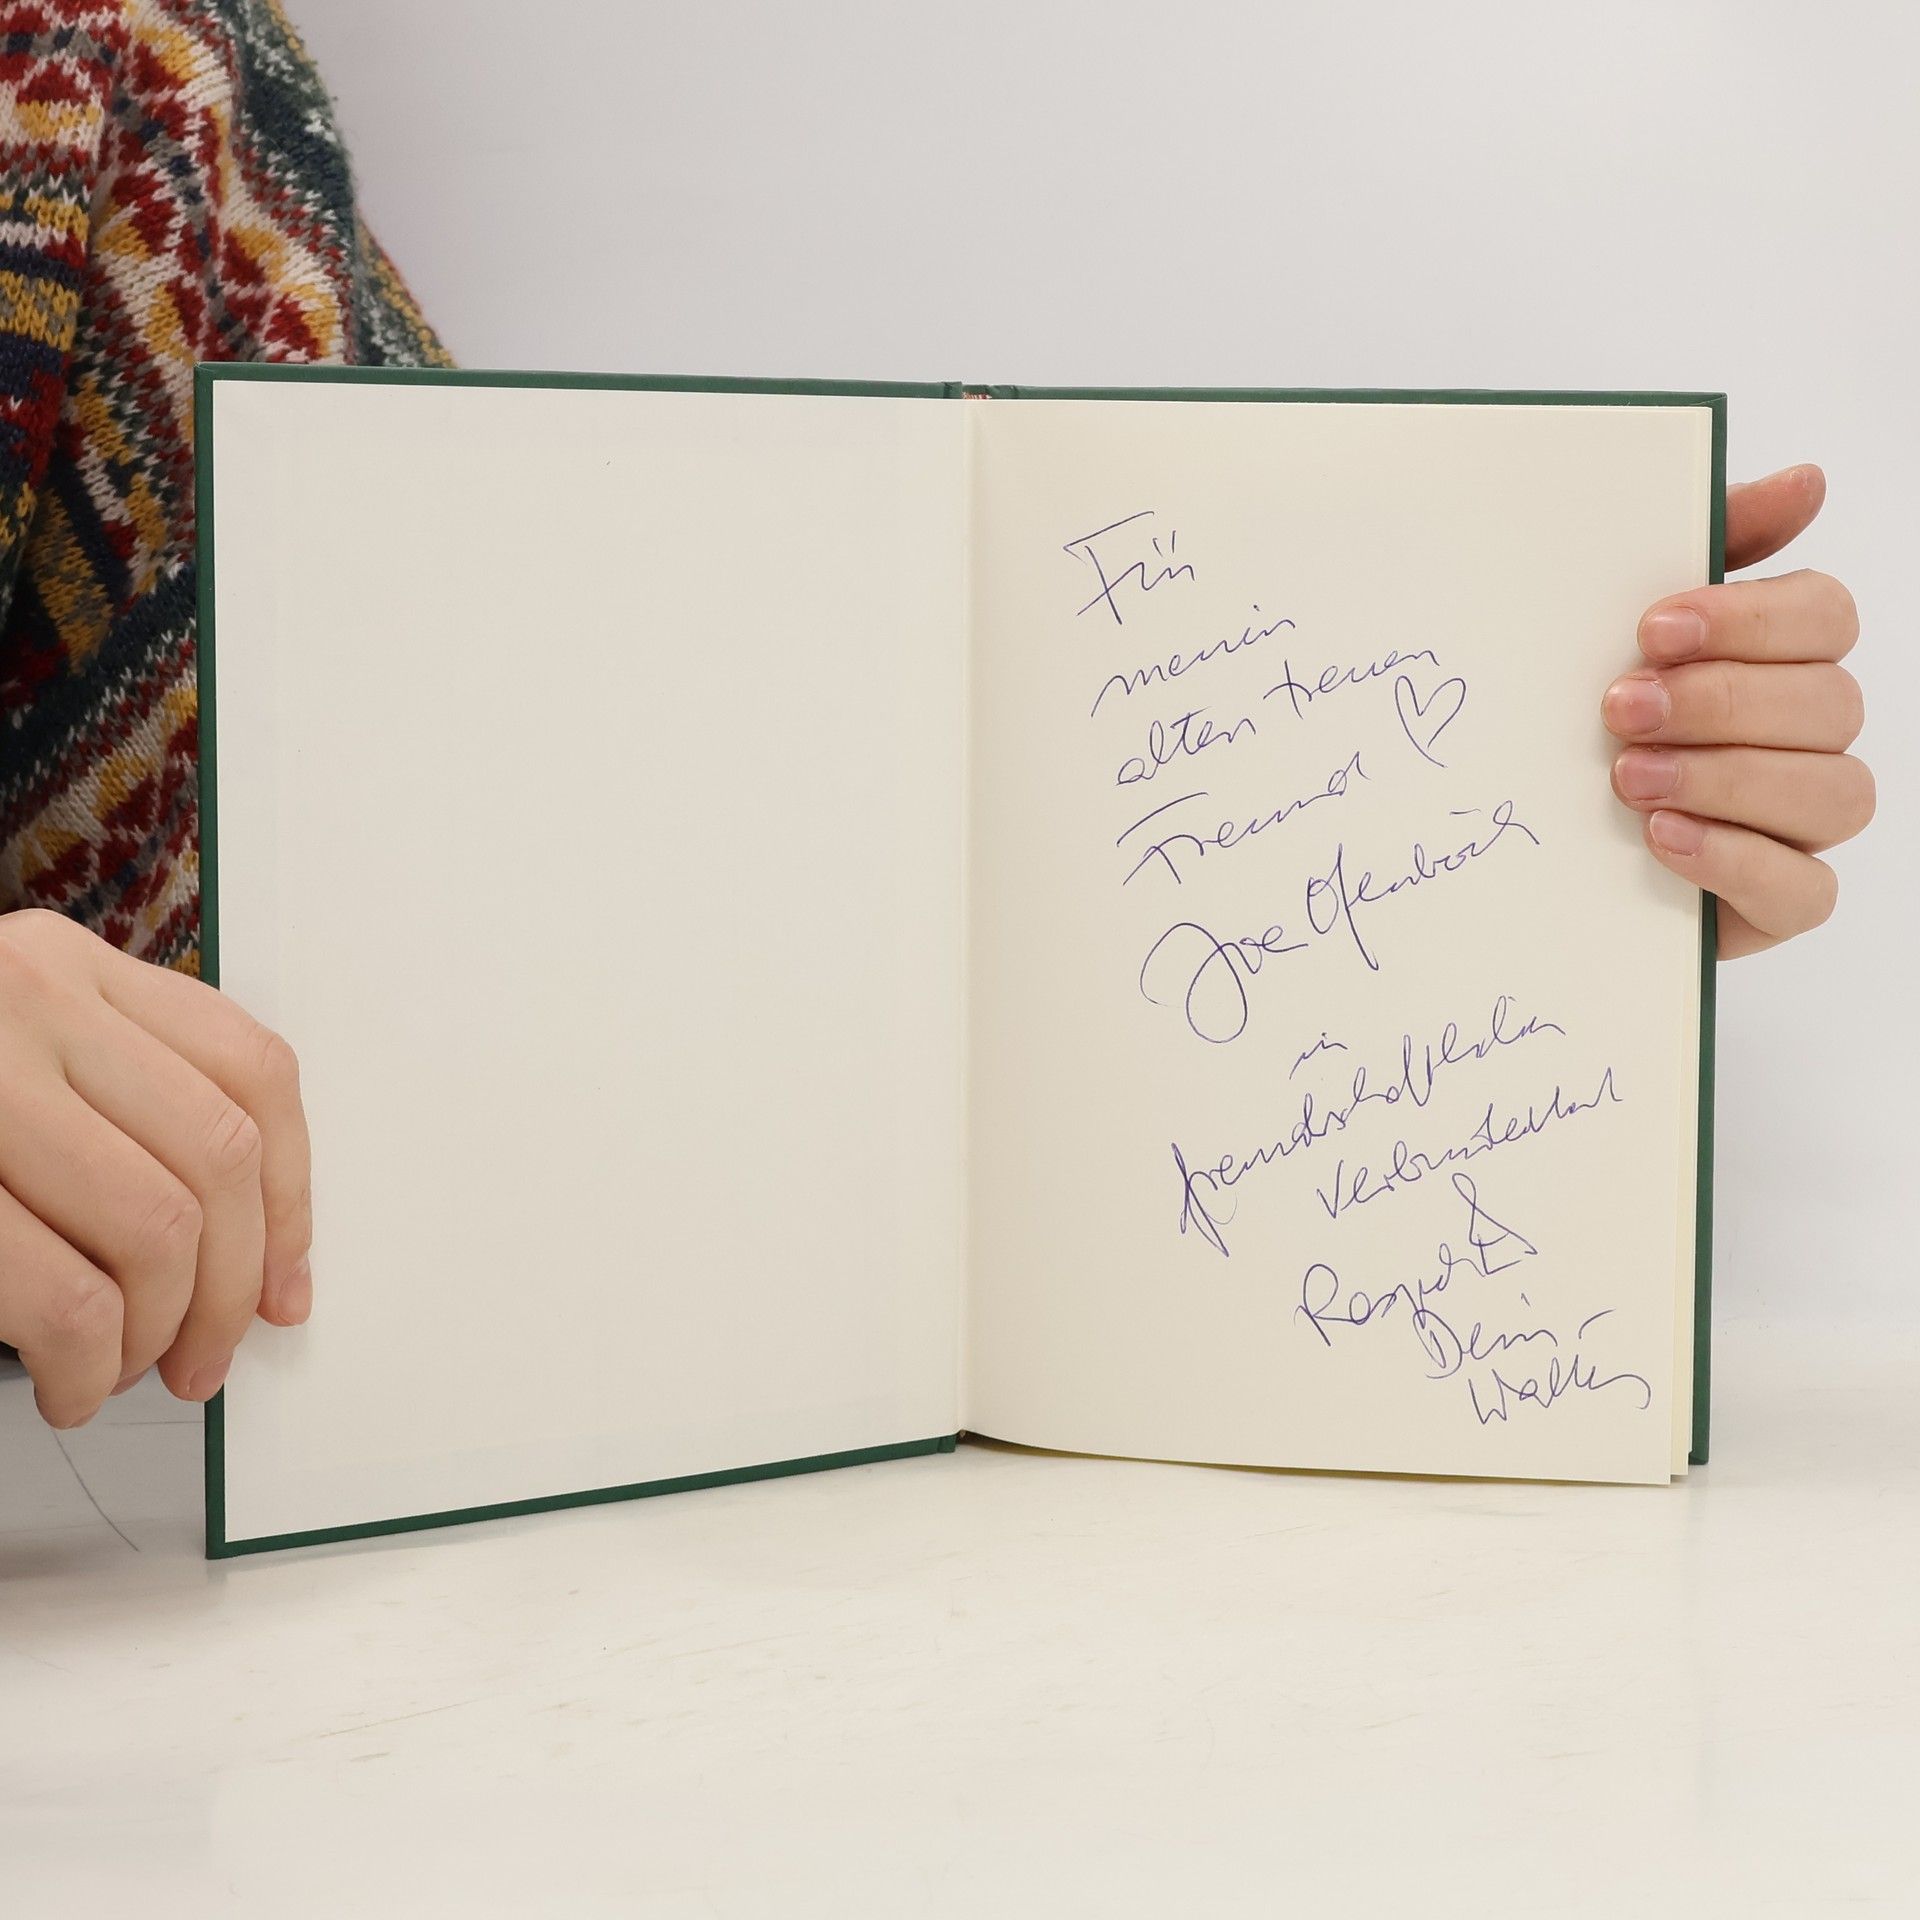 Für
meinen
alten treuen
Freund
Joe Ofenböck
in
freundschaftlicher
Verbundenheit
&
Respekt
Dein
Walter